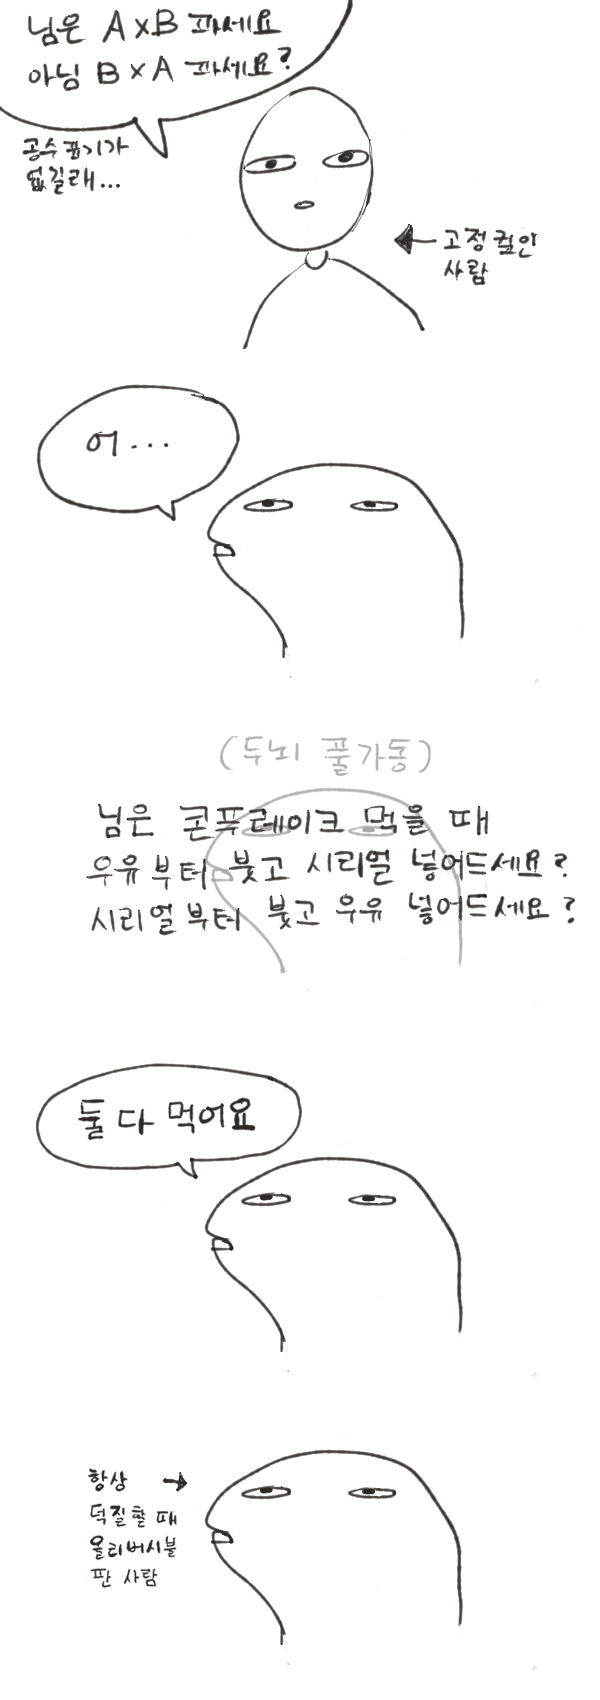 님은 AxB 파세요
아님 B x A 파세요?
공수 표기가
없길래...
고정 컾인
사람
어...
(두뇌 풀가동)
님은 콘푸레이크 먹을 때
우유부터 붓고 시리얼 넣어드세요?
시리얼부터 붓고 우유 넣어드세요?
둘 다 먹어요
항상
덕질할 때
올리버시블
판 사람